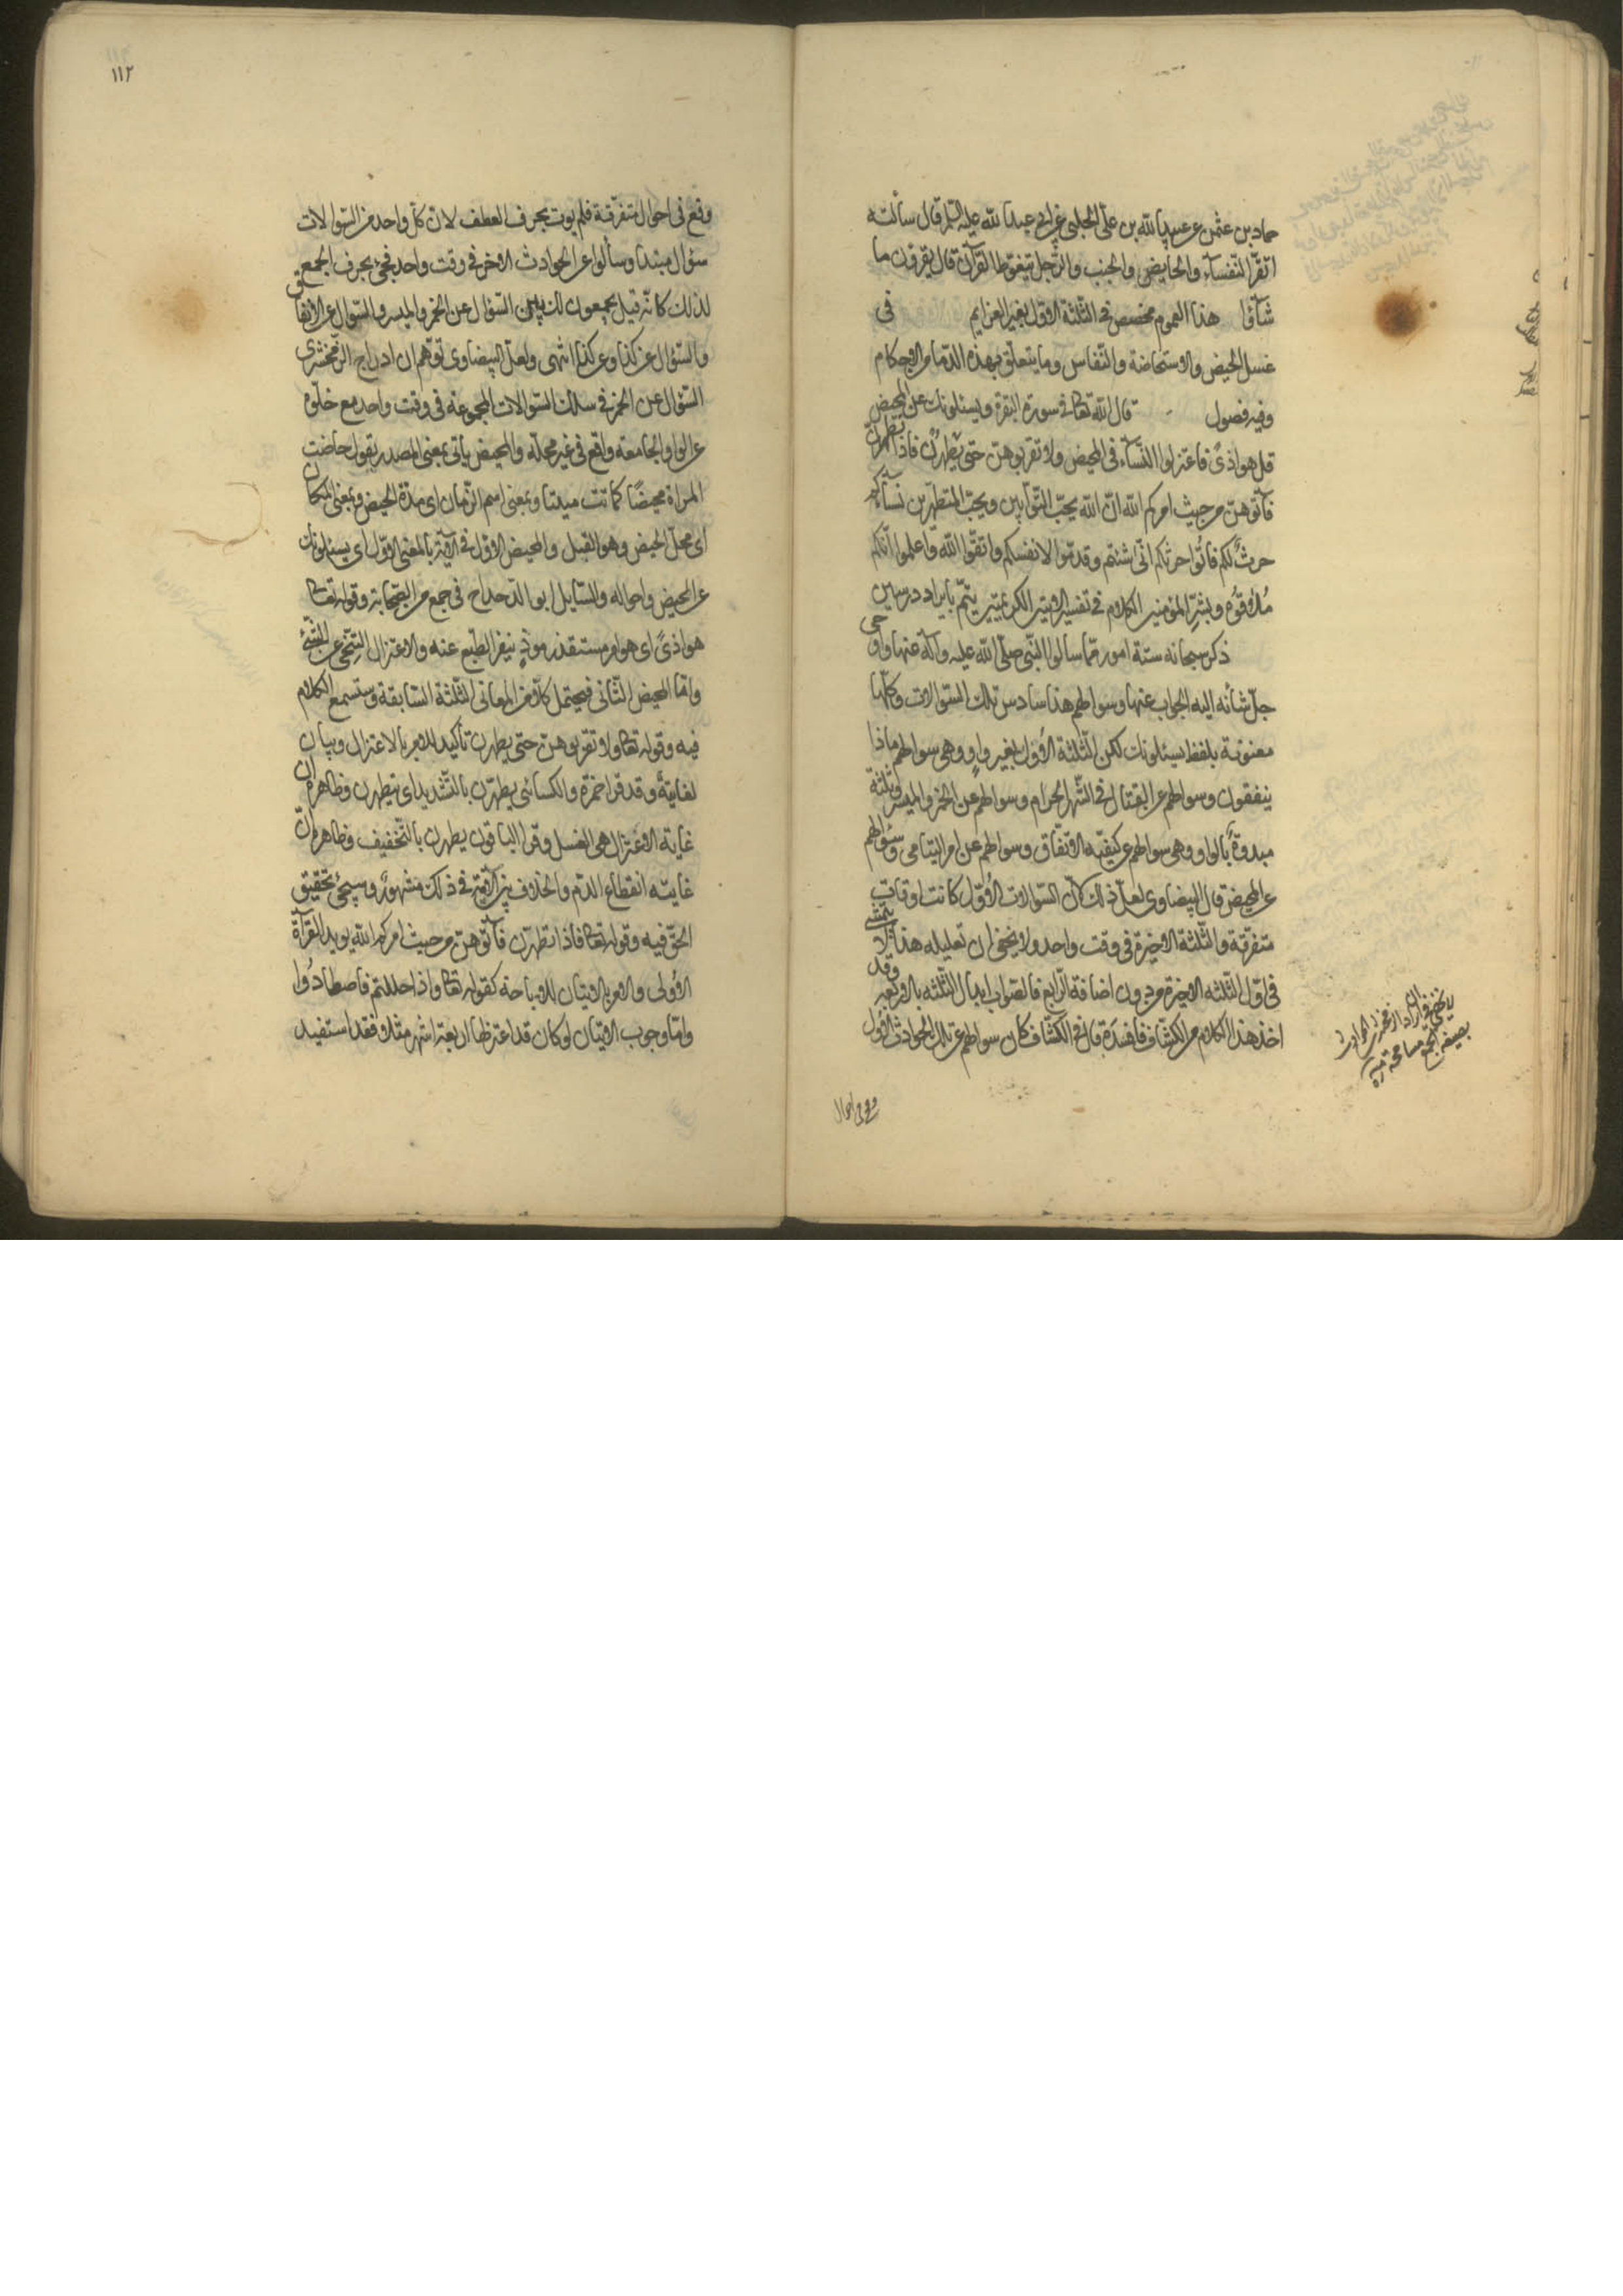 حماد بن عثمن عن عبيد الله بن على الحلبى عن ابى عبد الله عليه السلم قال سألته
اتقرأ النفسآء والحايض والجنب والرجل يتغوط القرآن قال يقرؤن ما
شآؤا هذا العموم مخصص فى الثلثة الاول بغير العزايم فى
غسل الحيض والاستحاضة والنفاس وما يتعلق بهذه الدمآء من الاحكام
وفيه فصول قال الله تعالى فى سورة البقرة ويسئلونك عن المحيض
قل هو اذى فاعتزلوا النسآء فى المحيض ولا تقربوهن حتى يطهرن فاذا تطهرن
فآتوهن من حيث امركم الله ان الله يحب التوابين ويحب المتطهرين نسآءكم
حرث لكم فاتوا حرثكم انى شئتم وقدموا لانفسكم واتقوا الله واعلموا انكم
ملاقوه وبشر المؤمنين الكلام فى تفسير الايتين الكريمتين يتم بايراد درسين
ذكر سبحانه ستة امور مما سالوا النبى صلى الله عليه وآله عنها واوحى
جل شأنه اليه الجواب عنها وسوالهم هذا سادس تلك السوالات وكلها
معنونة بلفظ يسئلونك لكن الثلثة الاول بغير واو وهى سوالهم ماذا
ينفقون وسوالهم عن القتال فى الشهر الحرام وسوالهم عن الخمر والميسر وثلثة
مبدوة بالواو وهى سوالهم عن كيفيه الانفاق وسوالهم عن امر اليتامى وسؤالهم
عن المحيض قال البيضاوى لعل ذلك لان السوالات الاول كانت اوقات
متفرقة والثلثة الاخيرة فى وقت واحد ولا يخفى ان تعليله هذا لا يتمشى
فى اول الثلثه الاخيرة من دون اضافة الرابع فالصواب ابدال الثلثه بالاربعه وقد
اخذ هذا الكلام من الكشاف فافسده قال فى الكشاف كان سوالهم عن تلك الحوادث الاول
وقع فى احوال
وقع فى احوال متفرقة فلم يوت بحرف العطف لان كل واحد من السوالات
سؤال مبتدأ وسألوا عن الحوادث الاخر فى وقت واحد فجئ بحرف الجمع
لذلك كانه قيل يجمعون لك بين السؤال عن الخمر والميسر والسؤال عن الانفاق
والسؤال عن كذا وعن كذا انتهى ولعل البيضاوى توهم ان ادراج الزمخشرى
السؤال عن الخمر فى سلك السوالات المجموعة فى وقت واحد مع خلوه
عن الواو الجامعة واقع فى غير محله والمحيض ياتى بمعنى المصدر يقول حاضت
المراة محيضا كما تت مبيتا وبمعنى اسم الزمان اى مدة الحيض وبمعنى المكان
اى محل الحيض وهو القبل والمحيض الاول فى الآية بالمعنى الاول اى يسئلونك
عن المحيض واحواله والسايل ابو الدحداح فى جمع من الصحابة وقوله تعالى
هو اذى اى هو امر مستقذر موذ ينفر الطبع عنه والاعتزال التنحى عن الشئ
واما المحيض الثانى فيحتمل كلا من المعانى الثلثة السابقة وستسمع الكلام
فيه وقوله تعالى ولا تقربوهن حتى يطهرن تأكيد للامر بالاعتزال وبيان
لغايته وقد قرا حمزة والكسائى يطهرن بالتشديد اى يتطهرن وظاهره ان
غاية الاعتزال هى الغسل وقرا الباقون يطهرن بالتخفيف وظاهره ان
غايته انقطاع الدم والخلاف بين الامة فى ذلك مشهور وسيجئ تحقيق
الحق فيه وقوله تعالى فاذا تطهرن فآتوهن من حيث امركم الله يويد القرآءة
الاولى والامر بالاتيان للاباحة كقوله تعالى واذا حللتم فاصطادوا
واما وجوب الاتيان لو كان قد اعتزلها اربعة اشهر مثلا فقد استفيد
١١٢